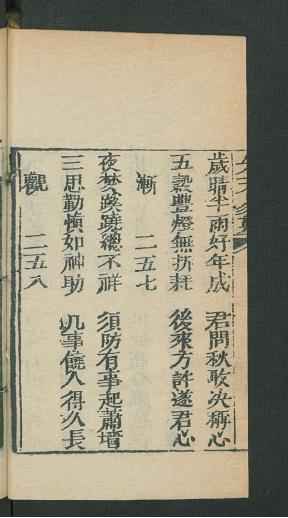 歲晴半雨好年成　君問秋收决稱心
五穀豐燈無折耗　後來方許遂君心
漸　二五七
夜梦蹊蹺總不祥　須防有事起蕭墻
三思勤慎如神助　凡事饒人得久長
觀　二五八